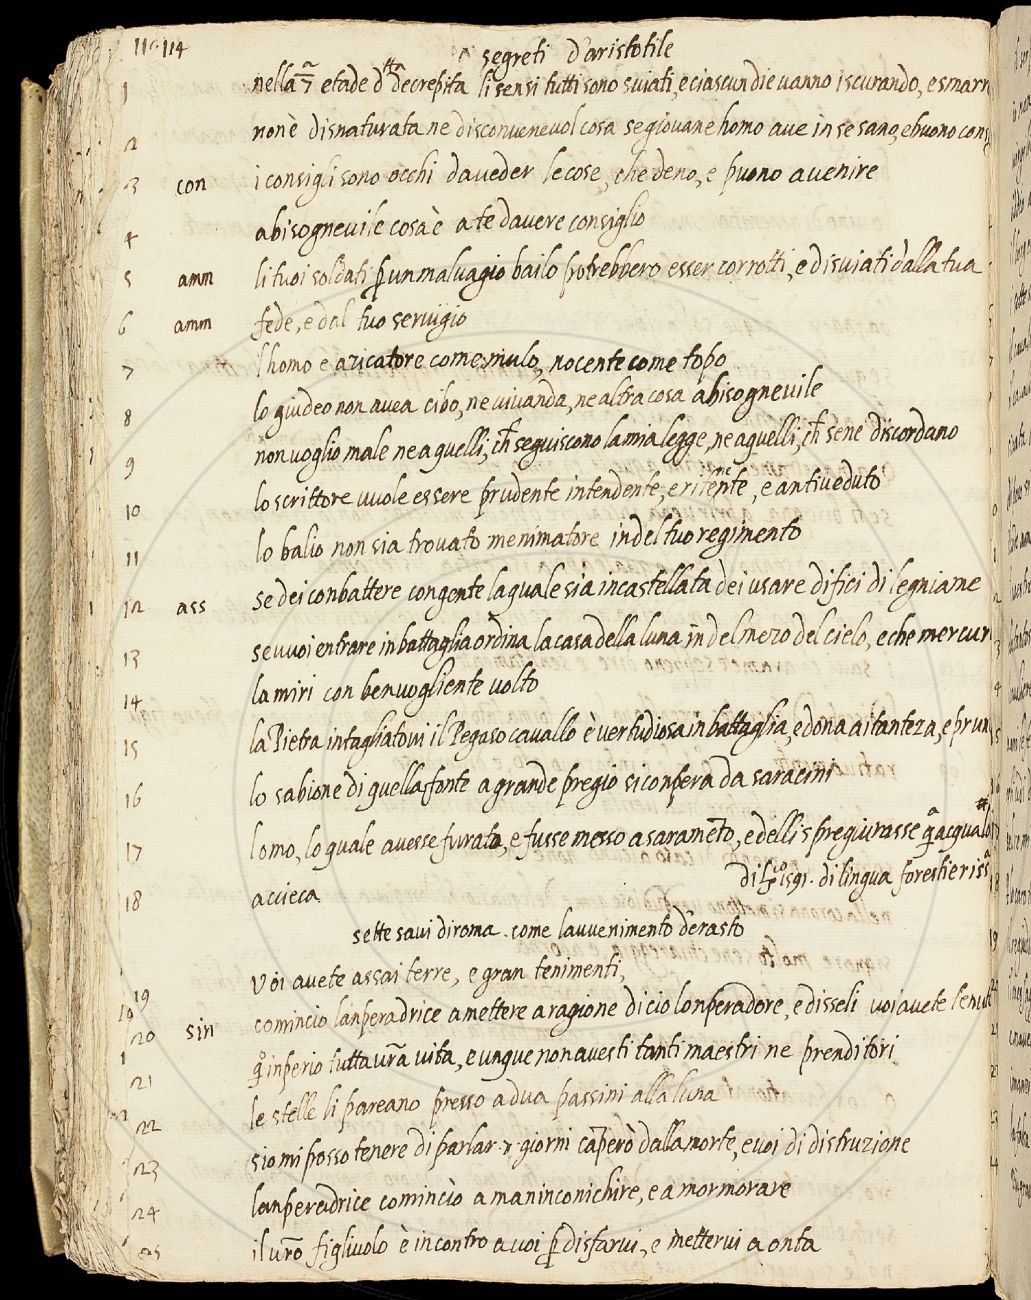 110 114
segreti d'aristotile
1 nella 7ª etade dtta decrepita li sensi tutti sono sviati, e ciascun die vanno iscurando, e smarr
2 non è disnaturata ne disconvenevol cosa se giovane homo ave in se sano, e buono cons
3 con i consigli sono occhi da veder le cose, che deno, e puono avenire
4 abisognevile cosa è a te d avere consiglio
5 amm li tuoi soldati ꝑ un malvagio bailo potrebbero esser corrotti, e disviati dalla tua
6 amm fede, e dal tuo servigio
7 l homo e aricatore come mulo, nocente come topo
8 lo giudeo non avea cibo, ne vivanda, ne altra cosa abisognevile
9 non voglio male ne a quelli, ch̃ seguiscono la mia legge, ne a quelli, ch̃ se ne discordano
10 lo scrittore vuole essere prudente intendente, e ritenente, e antiveduto
11 lo balio non sia trovato menimatore in del tuo regimento
12 ass se dei conbattere con gente la quale sia incastellata dei usare difici di legniame
13 se vuoi entrare in battaglia ordina la casa della luna in del mezo del cielo, e che mercur
14 la miri con benvogliente volto
15 la Pietra intagliatovi il Pegaso cavallo è vertudiosa in battaglia, e dona aitanteza, e prun
16 lo sabione di quella fonte a grande pregio si conpera da saracini
17 lomo, lo quale avesse furato, e fusse messo a saramẽto, ed elli spregiurasse
18 accieca
1591. di lingua forestieri
sette savi di roma. come l avvenimento d'erasto
voi avete assai terre, e gran tenimenti,
19 comincio lanperadrice a mettere a ragione di cio lonperadore, e disseli voi avete tenut
20 sin inperio tutta vr̃a vita, e unque non avesti tanti maestri ne prenditori
21 le stelle li pareano presso a dua passini alla luna
22 s io mi posso tenere di parlar 7 giorni cãperò dalla morte, e voi di distruzione
23 lanperadrice cominciò a maninconichire, e a mormorare
24 il vr̃o figlivolo è incontro a voi ꝑ disfarvi, e mettervi a onta
25